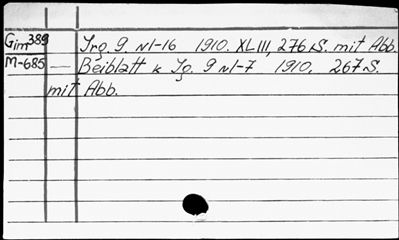 Gim 389 — Jrg. 9 N1-16 1910. XLIII, 276 S. mit Abb.
M-685 — Beiblatt k Jg. 9 N1-7 1910. 267 S.
mit Abb.